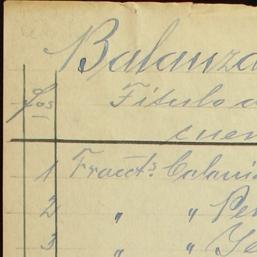 Balanza
Fos
Título d
cuen
1 Fracts. Coloni
2 " " Per
3 " " Se